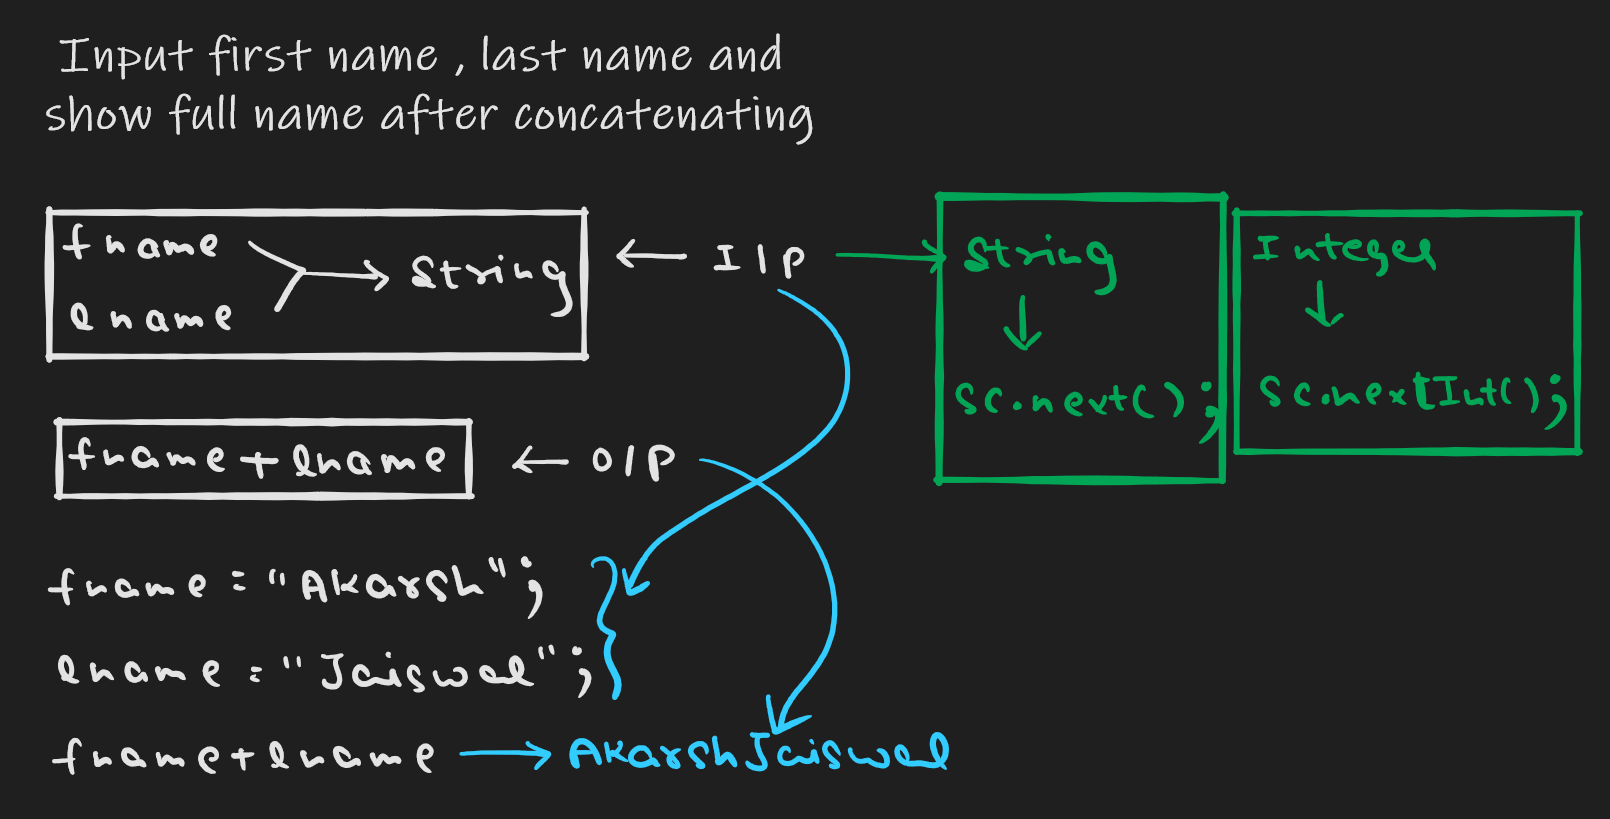 Input first name , last name and
show full name after concatenating
fname
lname
String
I/P
String
sc.next();
Integer
sc.nextInt();
fname+lname
O/P
fname = "Akarsh";
lname = "Jaiswal";
fname+lname
AkarshJaiswal